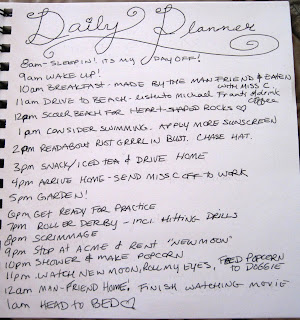 Daily Planner
8am - SLEEP IN! ITS MY DAY OFF!
9am WAKE UP!
10am BREAKFAST - MADE BY THE MAN FRIEND & EATEN WITH MISS C.
11am DRIVE TO BEACH - listen to Michael Franti & drink coffee
12pm SCOUR BEACH FOR HEART-SHAPED ROCKS ♡
1pm CONSIDER SWIMMING. APPLY MORE SUNSCREEN
2pm READ ABOUT RIOT GRRRL IN BUST. CHASE HAT.
3pm SNACK/ICED TEA & DRIVE HOME
4pm ARRIVE HOME - SEND MISS C OFF TO WORK
5pm GARDEN!
6pm GET READY FOR PRACTICE
7pm ROLLER DERBY - incl. Hitting DRILLS
8pm SCRIMMAGE
9pm STOP AT ACME & RENT "NEW MOON"
10pm SHOWER & MAKE POPCORN
11pm WATCH NEW MOON, ROLL MY EYES, FEED POPCORN TO DOGGIE
12am MAN-FRIEND HOME! FINISH WATCHING MOVIE
1am HEAD TO BED ♡